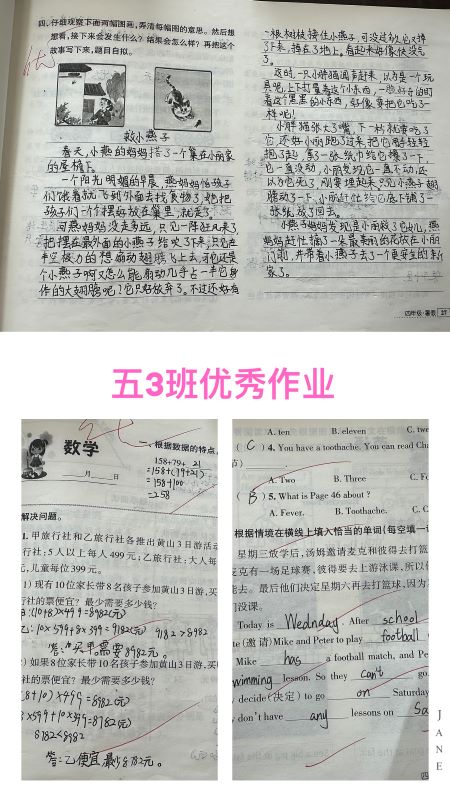 四、仔细观察下面两幅图画,弄清每幅图的意思。然后想
想看,接下来会发生什么?结果会怎么样?再把这个
故事写下来,题目自拟。
优
救小燕子
春天,小燕的妈妈搭了一个巢在小丽家
的屋檐下。
一个阳光明媚的早晨,燕妈妈怕孩子
们饿着就飞到外面去找食物,她把
孩子们一个个摆好放在巢里,就走了。
可燕妈妈没走多远,只见一阵狂风来了
把摆在最外面的小燕子给吹了下来,只见在
半空极力的想扇动翅膀飞上去,可它还是
个小燕子啊又怎么能扇动几乎占一半它身
体的大翅膀呢?它只好放弃了。不过还好有
一根树枝接住小燕子,可没过多久它又掉
了下来,摔在了地上。看起来好像快没气
了。
这时,一只小胖猫闻着起来,以为是一个玩
具呢,上下打量着这个小东西,一脸好奇的盯
着这个黑黑的小东西,好像要把它吃了一
样呢!
小胖猫张大了嘴,下一秒就要吃了
它,还好小丽跑了过来,把它用手轻轻
抱了起,拿了一张纸巾给它擦了一下,
它一直没动,小丽发现它一直不动,还
以为它死了,刚要埋起来,只见小燕子翅
膀动了一下,小丽赶忙给它底下铺了一
张纸,放了回去。
小燕子妈妈发现是小丽救了它幼儿,燕
妈妈赶忙摘了一朵最美丽的花放在小丽
门前,并带着小燕子去了一个更安全的新
家了。
四年级·暑教 27
五3班优秀作业
优
数学
月 日
、根据数据的特点,
158+79+ 21
=158+(79+21)
=158+100
=258
解决问题。
1. 甲旅行社和乙旅行社各推出黄山3日游活动
行社:5人以上每人499元;乙旅行社:大人每
元,儿童每位399元。
1) 现有10位家长带8名孩子参加黄山3日游,买
社的票便宜?最少需要多少钱?
甲:(10+8)×499=8982(元)
乙:10×599+8×399=9182(元) 9182>8982
答:买甲需要8982元。
) 如果8位家长带10名孩子参加黄山3日游,买
社的票便宜?最少需要多少钱?
(8+10)×499=8982(元)
8×599+10×399=8782(元)
8782<8982
答:乙便宜,最少8782元。
A. ten B. eleven C. twe
( C ) 4. You have a toothache. You can read Cha
节)
A. Two B. Three C. Fo
( B ) 5. What is Page 46 about ?
A. Fever. B. Toothache. C.
根据情境在横线上填入恰当的单词(每空填一
星期三放学后,汤姆邀请麦克和彼得去打篮
麦克有一场足球赛,彼得要去上游泳课,所以他
能去。最后他们决定星期六再去打篮球,因为
们没课。
Today is Wednday. After school
te (邀请) Mike and Peter to play football
Mike has a football match, and Pe
swimming lesson. So they can't go.
decide (决定) to go on Saturday
don't have any lessons on Sa
四
JANE